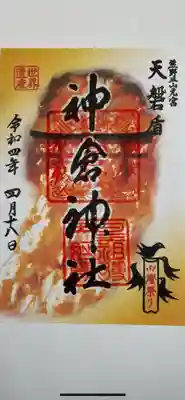 熊野三山元宮
天磐盾
神倉神社
令和四年 四月十八日
世界遺産
御燈祭り